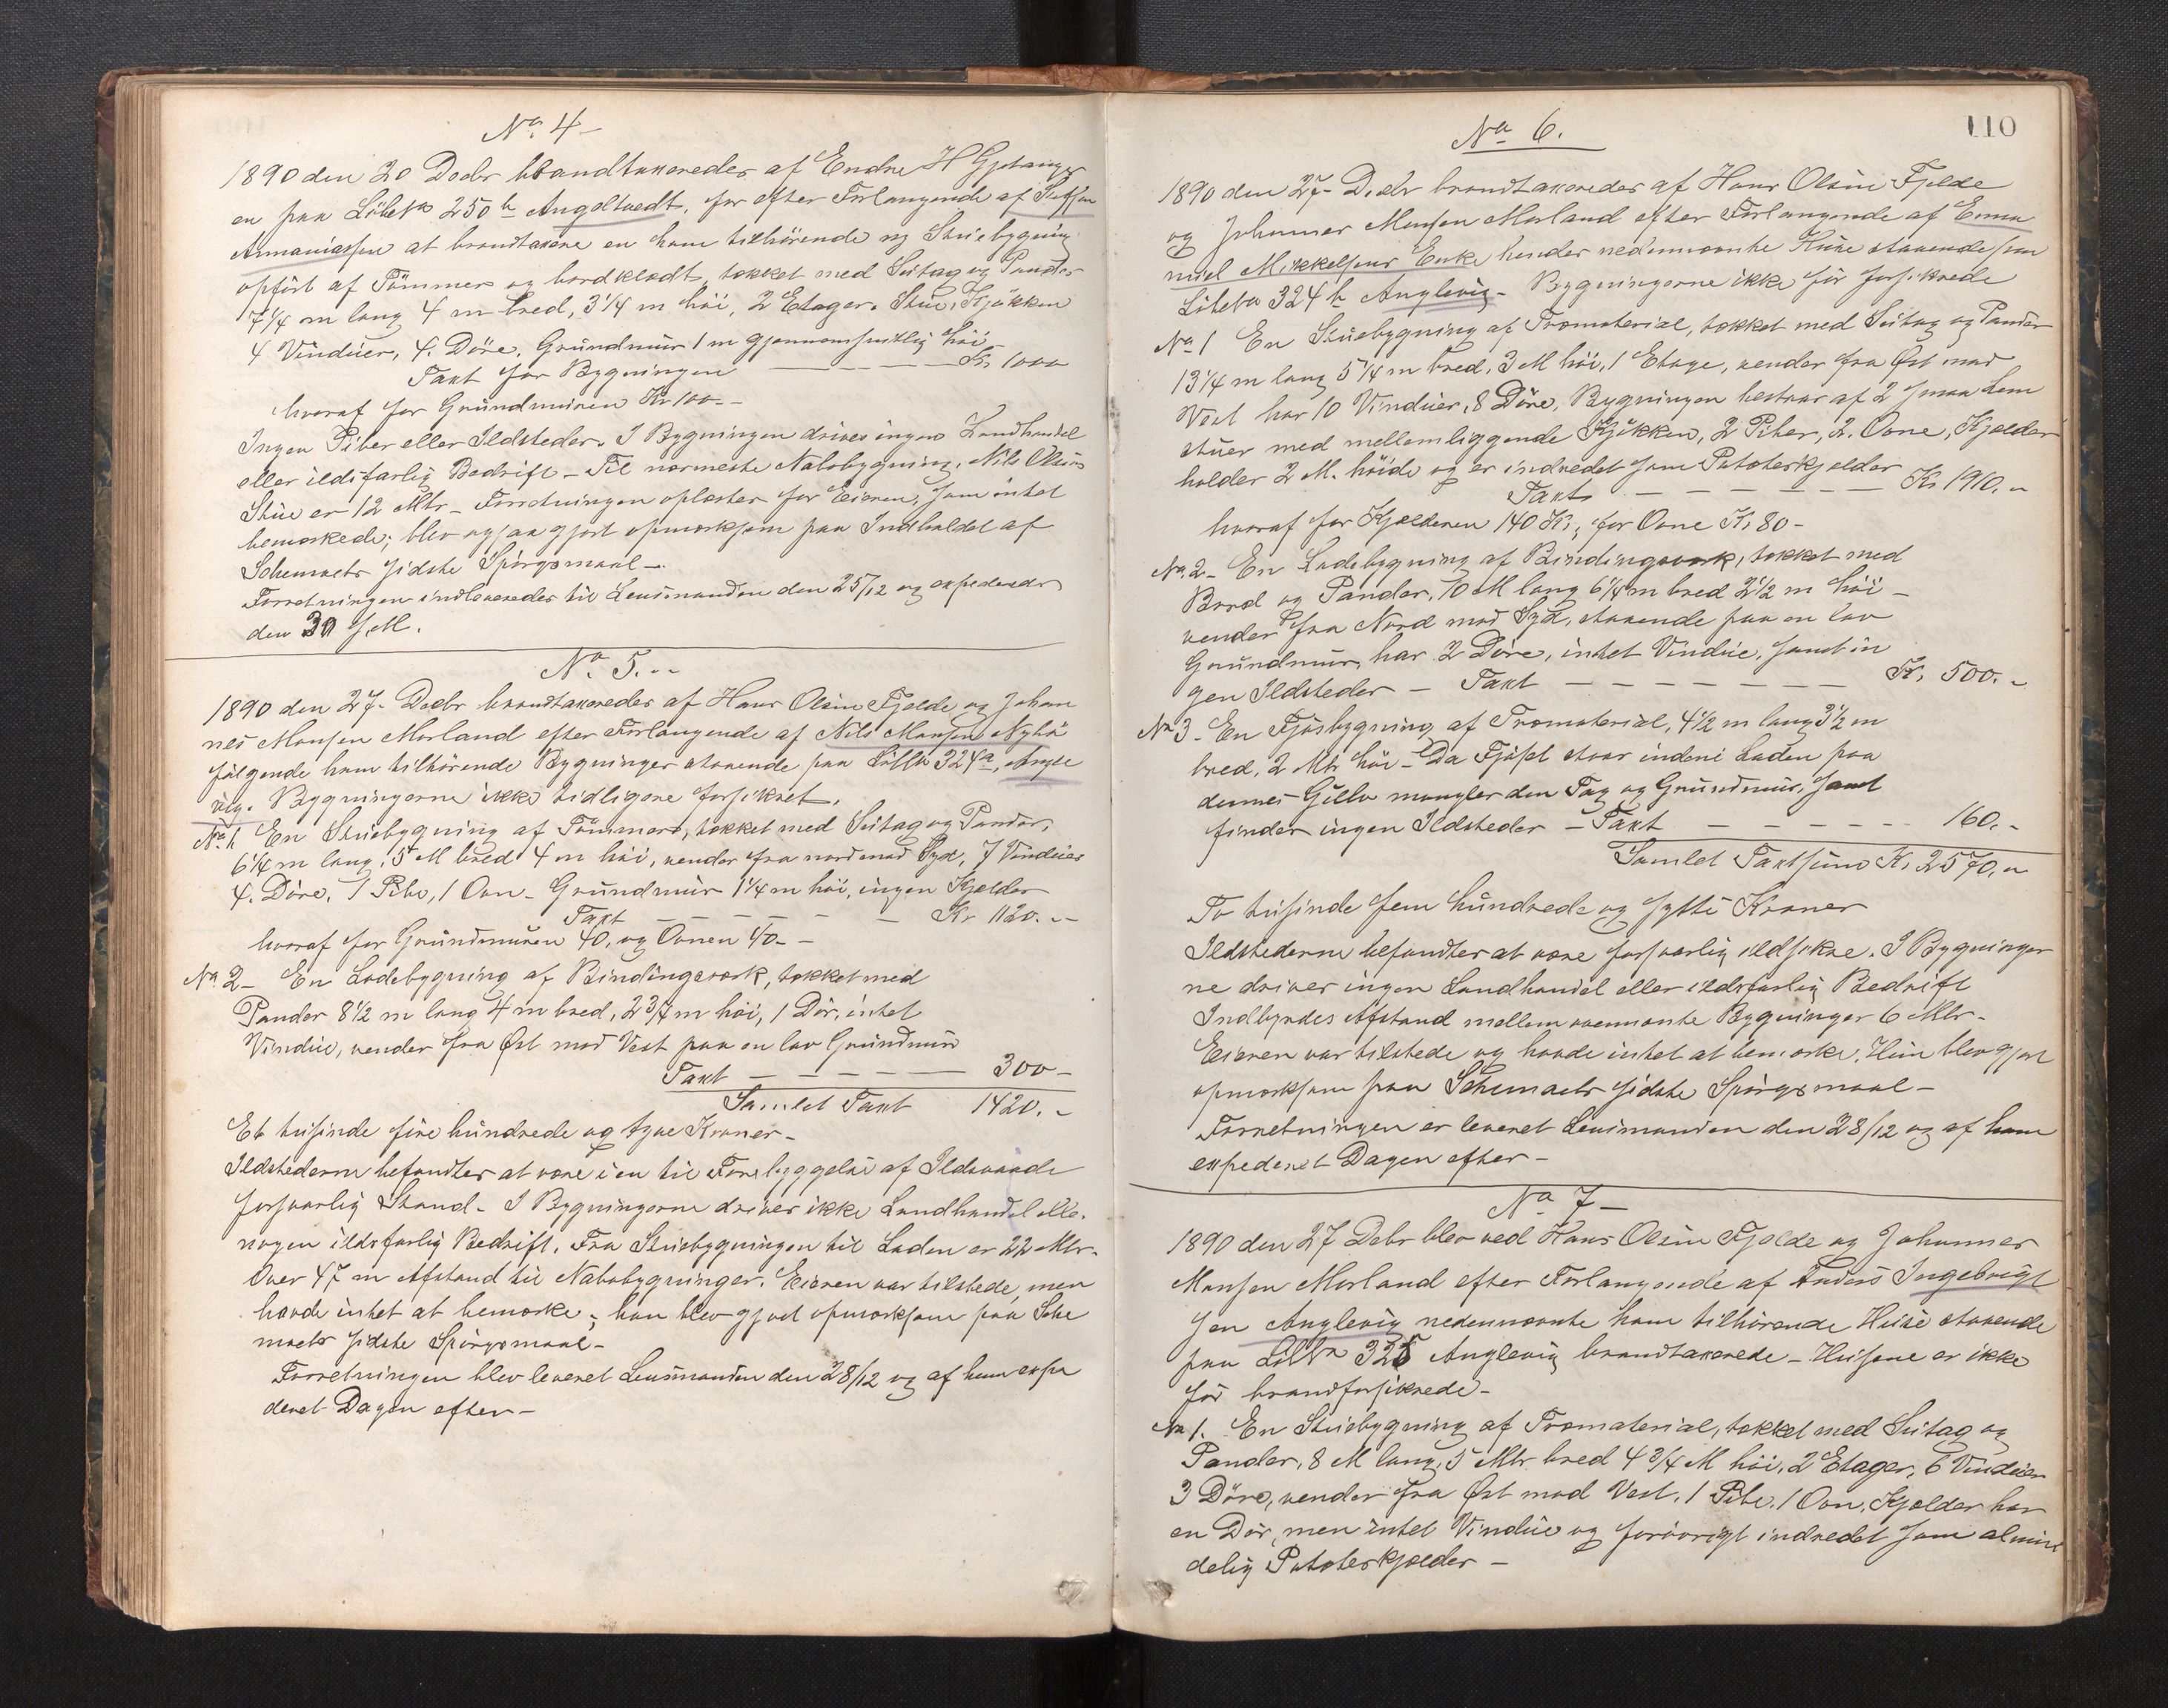 No 4
1890 den 20 Decbr brandtaxeredes af Endre H Gjetanger
en paa Löbeno 250 b Angeltvedt, for efter Forlangende af Steffen
Annaniassen at brandtaxere en ham tilhörende ny Stuebygning
opfört af Tömmer og bordklædt, tækket med Sutag og Pander
7 1/4 m lang 4 m bred, 3 1/4 m höi, 2 Etager. Stue, Kjökken
4 Vinduer, 4. Döre, Grundmur 1 m gjennemsnitlig höi
Taxt for Bygningen — — — — Kr 1000
hvoraf for Grundmuren Kr 100.-
Ingen Piber eller Ildsteder. I Bygningen drives ingen Landhandel
eller ildsfarlig Bedrift - Til nærmeste Nabobygning, Nils Olsens
Stue er 12 Mtr - Forretningen oplæstes for Eieren, som intet
bemærkede; blev ogsaa gjort opmærksom paa Indholdet af
Schemaets sidste Spörgsmaal -
Forretningen indleveredes til Lensmanden den 25/12 og expederedes
den 30 s.M.
No 5.
1890 den 27- Decbr brandtaxeredes af Hans Olsen Fjelde og Johan
nes Monsen Morland efter Forlangende af Nils Monsen Nyhö
fölgende ham tilhörende Bygninger staaende paa Löbno 324a, Angle
vig. Bygningerne ikke tidligere forsikret.
No 1 En Stuebygning af Tömmer, tækket med Sutag og Pander,
6 1/4 m lang, 5 M bred 4 m höi, vender fra nord mod Syd, 7 Vinduer
4. Döre. 1 Pibe, 1 Ovn - Grundmur 1 1/4 m höi, ingen Kjelder
Taxt — — — — — Kr 1120.-
hvoraf for Grundmuren 40, og Ovnen 40.-
No 2 - En Ladebygning af Bindingsverk, tækket med
Pander 8 1/2 m lang 4 m bred, 2 3/4 m höi, 1 Dör, intet
Vindue, vender fra Öst mod Vest paa en lav Grundmur
Taxt — — — — — 300 -
Samlet Taxt 1420.-
Et tusinde fire hundrede og tyve Kroner -
Ildstederne befandtes at være i en til Forebyggelse af Ildsvaade
forsvarlig Stand - I Bygningerne drives ikke Landhandel elle.
nogen ildsfarlig Bedrift. Fra Stuebygningen til Laden er 22 Mtr.
Over 47 m Afstand til Nabobygninger. Eieren var tilstede, men
havde intet at bemærke; han blev gjort opmærksom paa Sche
maets sidste Spörgsmaal -
Forretningen blev leveret Lensmanden den 28/12 og af ham expe
deret Dagen efter -
110
No 6.
1890 den 27- Decbr brandtaxeredes af Hans Olsen Fjelde
og Johannes Monsen Morland efter Forlangende af Emma
nuel Mikkelsens Enke hendes nedennævnte Huse staaende paa
Löbeno 324 b Anglevig - Bygningerne ikke för forsikrede
No 1 En Stuebygning af Træmaterial, tækket med Sutag og Pander
13 1/4 m lang 5 1/4 m bred, 3 M höi, 1 Etage, vender fra Öst mod
Vest har 10 Vinduer, 8 Döre, Bygningen bestaar af 2 smaa Lem
stuer med mellemliggende Kjökken, 2 Piber, 2. Ovne, Kjelder
holder 2 M. höide og er indredet som Poteterkjelder
Taxt — — — — — — Kr 1910.-
hvoraf for Kjelderen 140 Kr, for Ovne Kr 80 -
No 2 - En Ladebygning af Bindingsverk, tækket med
Bord og Pander, 10 M lang 6 1/4 m bred 2 1/2 m höi -
vender fra Nord mod Syd, staaende paa en lav
Grundmur, har 2 Döre, intet Vindue, samt in
gen Ildsteder - Taxt — — — — — — Kr. 500.-
No 3 - En Fjösbygning af Træmaterial, 4 1/2 m lang 3 1/2 m
bred, 2 Mtr höi - Da Fjöset staar indeni Laden paa
dennes Gulv mangler den Tag og Grundmur, samt
findes ingen Ildsteder - Taxt — — — — — 160.-
Samlet Taxtsum Kr 2570.-
To tusinde fem hundrede og sytti Kroner
Ildstederne befandtes at være forsvarlig ildsikre. I Bygninger
ne drives ingen Landhandel eller ildsfarlig Bedrift
Indbyrdes Afstand mellem ovennævnte Bygninger 6 Mtr -
Eieren var tilstede og havde intet at bemærke. Hun blev gjort
opmærksom paa Schemaets sidste Spörgsmaal -
Forretningen er leveret Lensmanden den 28/12 og af ham
expederet Dagen efter -
No 7 -
1890 den 27 Debr blev ved Hans Olsen Fjelde og Johannes
Monsen Morland efter Forlangende af Anders Ingebrigt
sen Anglevig nedennævnte ham tilhörende Huse staaende
paa Löbno 325 Anglevig brandtaxerede - Husene er ikke
för brandforsikrede -
No 1. En Stuebygning af Træmaterial, tækket med Sutag og
Pander, 8 M lang, 5 Mtr bred 4 3/4 M höi, 2 Etager, 6 Vinduer
3 Döre, vender fra Öst mod Vest. 1 Pibe, 1 Ovn, Kjelder har
en Dör, men intet Vindue og forövrigt indredet som almin
delig Poteterkjelder -